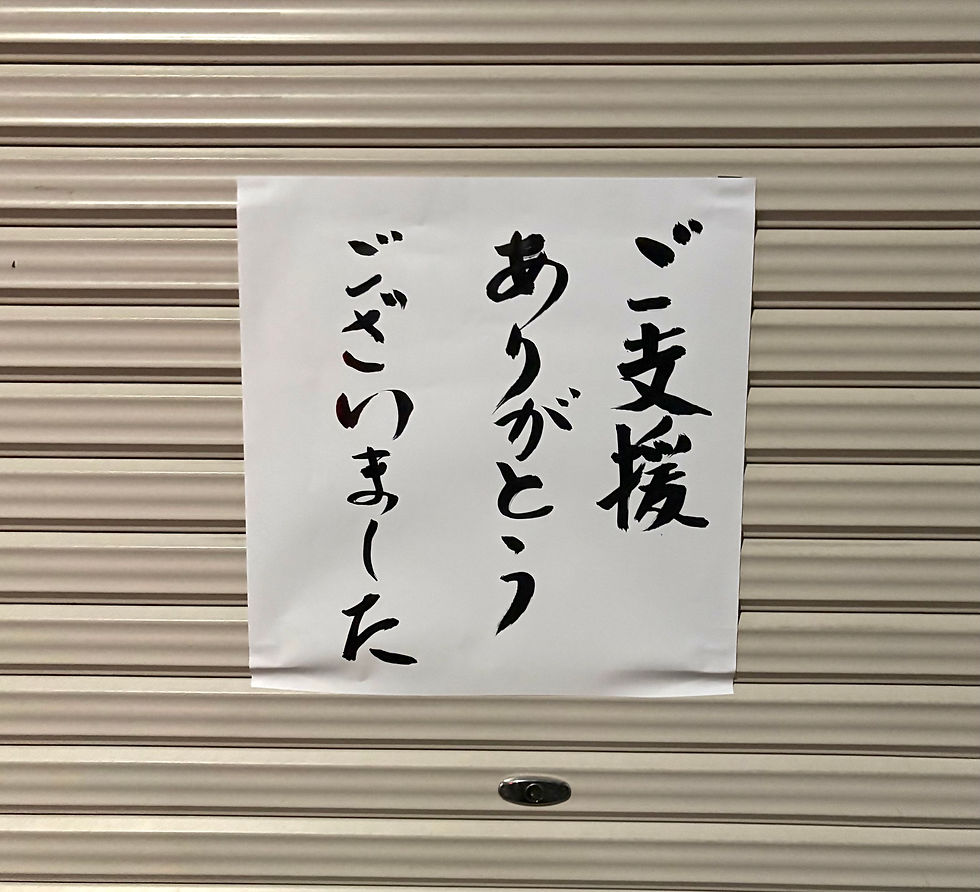 ご支援
ありがとう
ございました